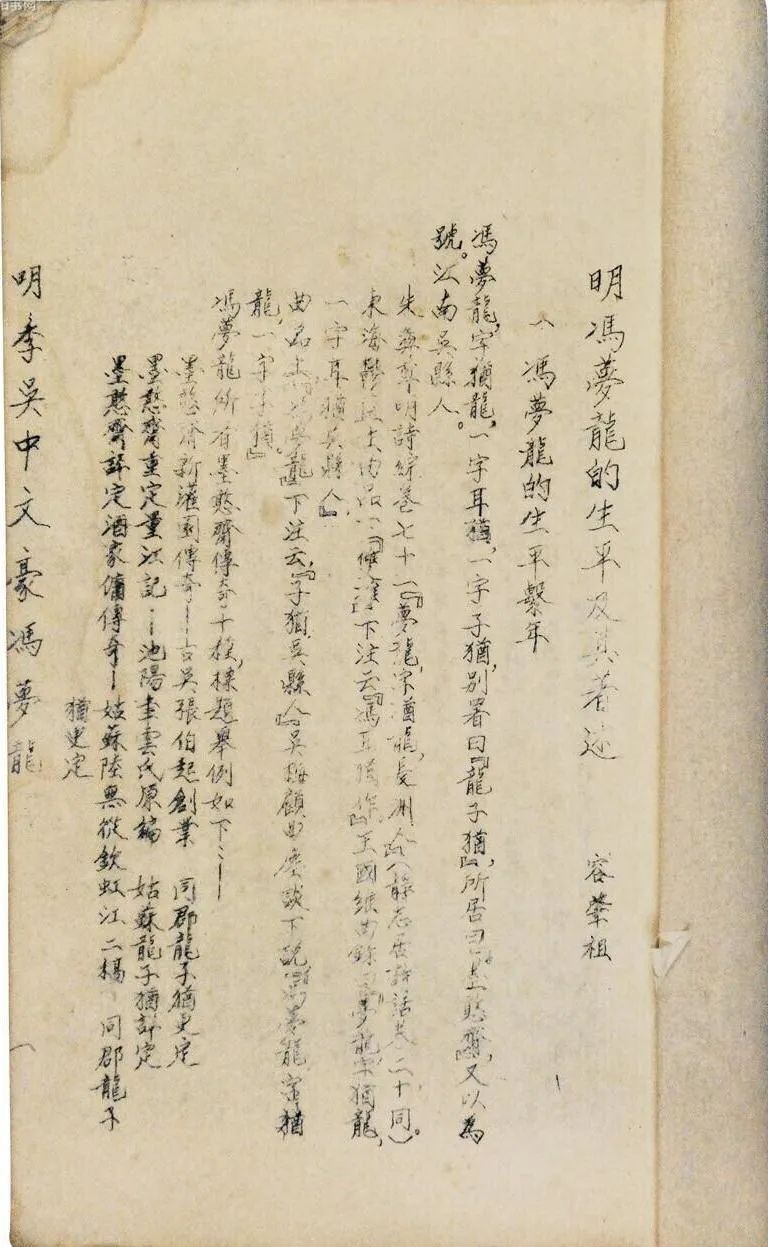 明馮夢龍的生平及其著述　容肇祖
一 馮夢龍的生平繫年
馮夢龍，字猶龍，一字耳猶，一字子猶，別署曰『龍子猶』，所居曰『墨憨齋』，又以為
號。江南吳縣人。
朱彝尊明詩綜卷七十一『夢龍，字猶龍，長洲人』（靜志居詩話卷二十同）。
東海鬱藍生曲品『雙雄』下注云『馮耳猶作』王國維曲錄『夢龍字猶龍，
一字耳猶吳縣人』。
曲名上『馮夢龍』下注云，『子猶，吳縣人』吳梅顧曲麈談下說，『馮夢龍字猶
龍，一字子猶』。
馮夢龍所有墨憨齋傳奇十種，標題舉例如下：—
墨憨齋新灌園傳奇—古吳張伯起創業　同郡龍子猶更定
墨憨齋重定量江記—池陽聿雲氏原編　姑蘇龍子猶詳定
墨憨齋詳定酒家傭傳奇—姑蘇陸無從欽虹江二稿　同郡龍子
猶更定
明季吳中文豪馮夢龍
一